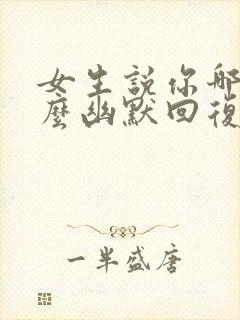 女生說你哪
麼幽默回復
一半盛唐